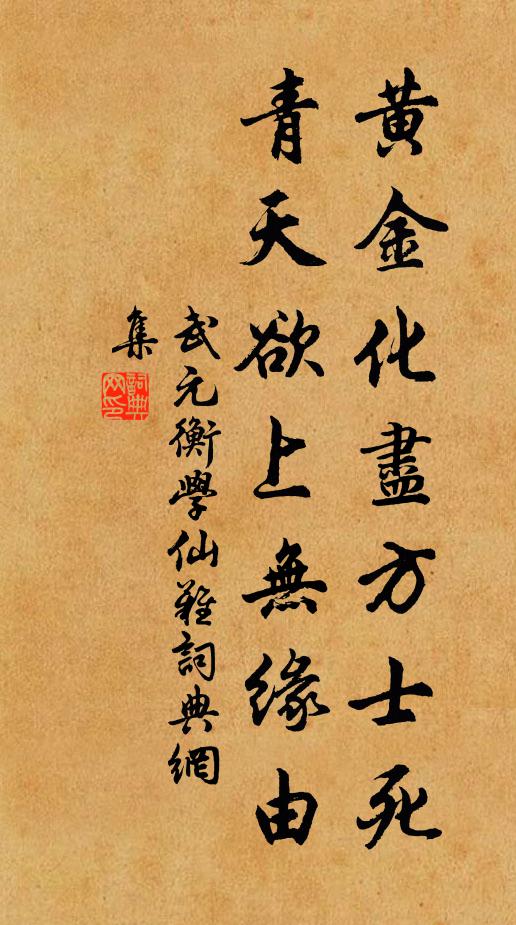 黃金化盡方士死
青天欲上無緣由
武元衡學仙難詞典網
集
詞典
网印